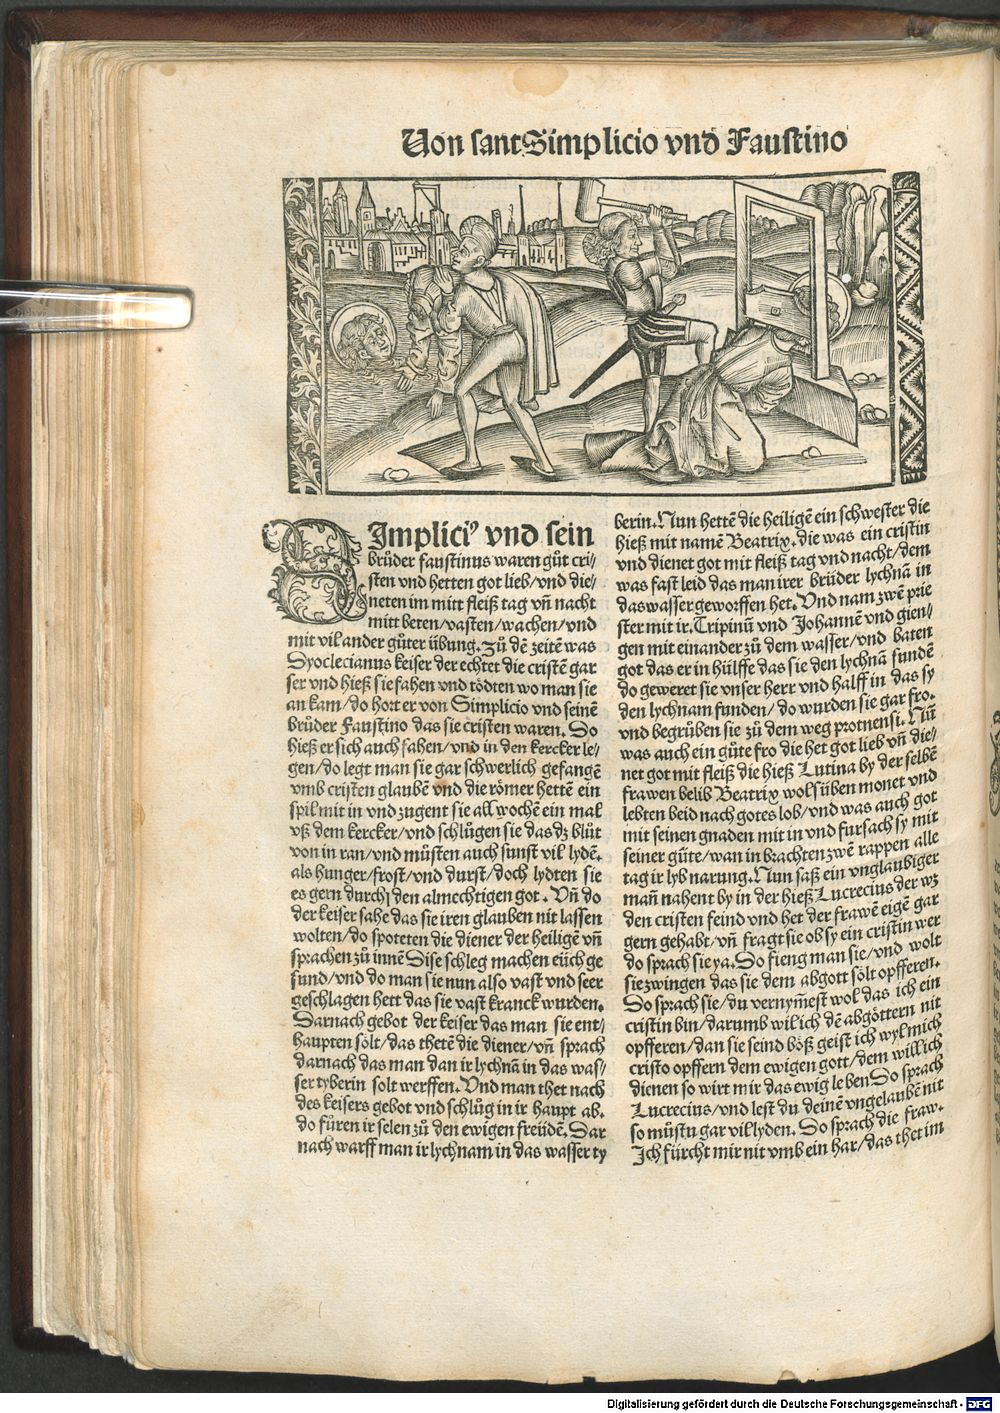 Von sant Simplicio vnd Faustino
SImplici⁹ vnd sein
brůder faustinus waren gůt cri⸗
sten vnd hetten got lieb/vnd die⸗
neten im mitt fleiß tag vñ nacht
mitt beten/vasten/wachen/vnd
mit vil ander gůter übung. Zů dē zeitē was
Dyoclecianus keiser der echtet die cristē gar
ser vnd hieß sie fahen vnd tödten wo man sie
an kam/do hort er von Simplicio vnd seinē
brůder Faustino das sie cristen waren. Do
hieß er sich auch fahen/vnd in den kercker le⸗
gen/do legt man sie gar schwerlich gefangē
vmb cristen glaubē vnd die römer hettē ein
spil mit in vnd zugent sie all wochē ein mal
vß dem kercker/vnd schlůgen sie das dz blůt
von in ran/vnd můsten auch sunst vil lydē.
als hunger/frost/vnd durst/doch lydten sie
es gern durch den almechtigen got. Vñ do
der keiser sahe das sie iren glauben nit lassen
wolten/do spoteten die diener der heiligē vñ
sprachen zů innē Dise schleg machen eüch ge
sund/vnd do man sie nun also vast vnd seer
geschlagen hett das sie vast kranck wurden.
Darnach gebot der keiser das man sie ent⸗
haupten sölt/das thetē die diener/vñ sprach
darnach das man dan ir lychnā in das was⸗
ser tyberin solt werffen. Vnd man thet nach
des keisers gebot vnd schlůg in ir haupt ab.
do fůren ir selen zů den ewigen freüdē. Dar
nach warff man ir lychnam in das wasser ty
berin. Nun hettē die heiligē ein schwester die
hieß mit namē Beatrix. die was ein cristin
vnd dienet got mit fleiß tag vnd nacht/dem
was fast leid das man irer brüder lychnā in
das wasser geworffen het. Vnd nam zwē prie
ster mit ir. Tripinū vnd Johannē vnd gien⸗
gen mit einander zů dem wasser/vnd baten
got das er in hülffe das sie den lychnā fundē
do geweret sie vnser herr vnd halff in das sy
den lychnam funden/do wurden sie gar fro.
vnd begrůben sie zů dem weg protnensi. Nū
was auch ein gůte fro die het got lieb vñ die⸗
net got mit fleiß die hieß Lutina by der selbē
frawen belib Beatrix wol süben monet vnd
lebten beid nach gotes lob/vnd was auch got
mit seinen gnaden mit in vnd fursach sy mit
seiner güte/wan in brachten zwē rappen alle
tag ir lyb narung. Nun saß ein vnglaubiger
mañ nahent by in der hieß Lucrecius der wz
den cristen feind vnd het der frawē eigē gar
gern gehabt/vñ fragt sie ob sy ein cristin wer
do sprach sie ya. So fieng man sie/vnd wolt
sie zwingen das sie dem abgott sölt opfferen.
Do sprach sie/du vernymest wol das ich ein
cristin bin/darumb wil ich dē abgöttern nit
opfferen/dan sie seind böß geist ich wyl mich
cristo opffern dem ewigen gott/dem will ich
dienen so wirt mir das ewig leben Do sprach
Lucrecius/vnd lest du deinē vngelaubē nit
so můstu gar vil lyden. Do sprach die fraw.
Ich fürcht mir nit vmb ein har/das thet im
Digitalisierung gefördert durch die Deutsche Forschungsgemeinschaft - DFG